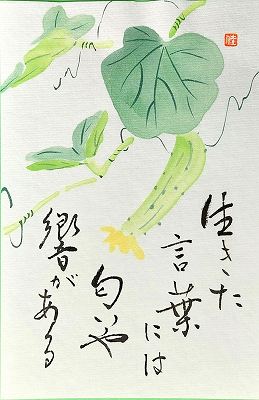 生きた
言葉
には
匂いや
響が
ある